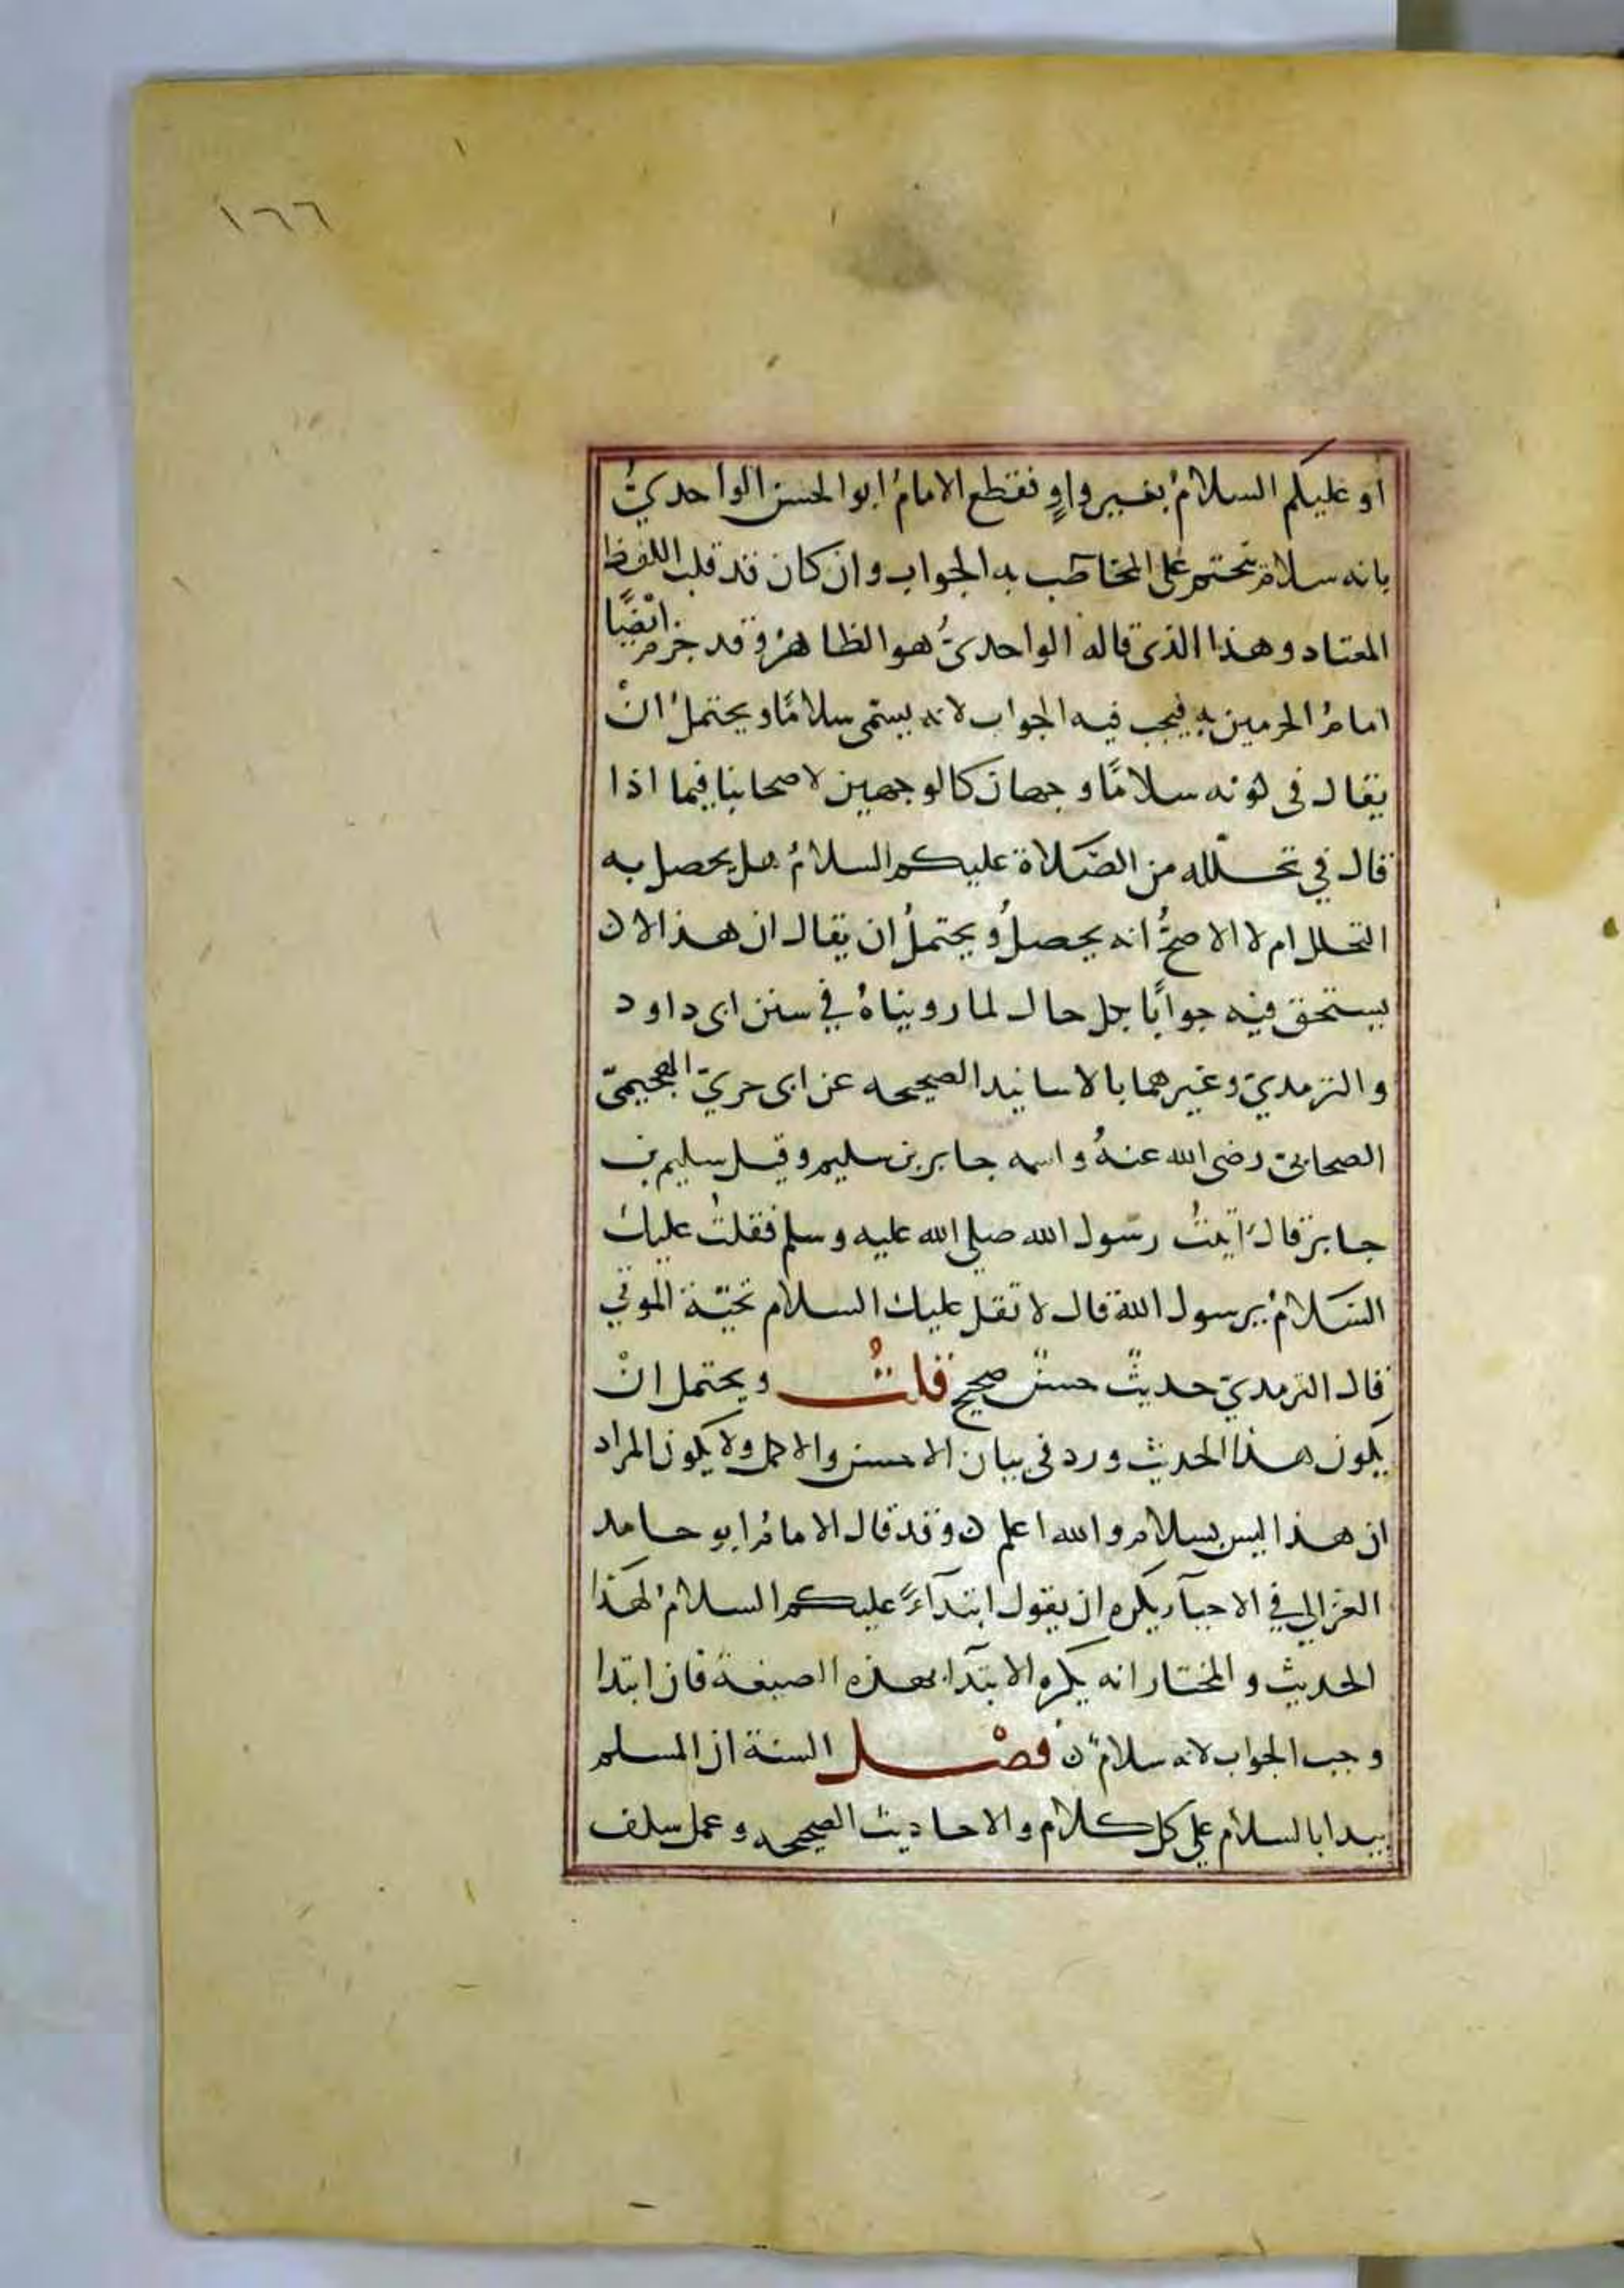 ١٦٦
أو عليكم السلامُ بغير واوٍ فقطع الامامُ ابو الحسن الواحديُّ
بانه سلام يتحتم على المخاطب به الجواب وان كان قد قلب اللفظ
المعتاد وهذا الذي قاله الواحديُّ هو الظاهرُ وقد جزم ايضًا
امامُ الحرمين به فيجب فيه الجواب لانه يسمّى سلامًا ويحتملُ انْ
يقال في كونه سلامًا وجهان كالوجهين لاصحابنا فيما اذا
قال في تحلّله من الصّلاة عليكم السلامُ هل يحصل به
التحلل ام لا الاصحُّ انه يحصلُ ويحتملُ ان يقال ان هذا لا ن
يستحق فيه جوابًا بكل حال لما رويناهُ في سنن ابى داود
والترمديّ وغيرهما بالاسانيد الصحيحه عن ابى جريّ الهجيمىّ
الصحابىّ رضى الله عنهُ واسمه جابر بن سليم وقيل سليم بن
جابر قال اتيتُ رسول الله صلى الله عليه وسلم فقلتُ عليك
السّلامُ يرسول الله قال لا تقل عليك السلام تحيّة الموتى
قال الترمديّ حديثٌ حسنٌ صحيح قلتُ ويحتمل انْ
يكون هذا الحديث ورد فى بيان الاحسن والاكمل ولا يكون المراد
ان هذا ليس بسلام والله اعلم ن وقد قال الامامُ ابو حامد
الغزالي في الاحيآء يكره ان يقول ابتدآءً عليكم السلامُ لهذا
الحديث والمختار انه يكره الابتدآ بهذه الصيغة فان ابتدا
وجب الجواب لانه سلامٌ ن فصْل السنة ان المسلم
يبدا بالسلام على كل كلام والاحاديث الصحيحه وعمل سلف